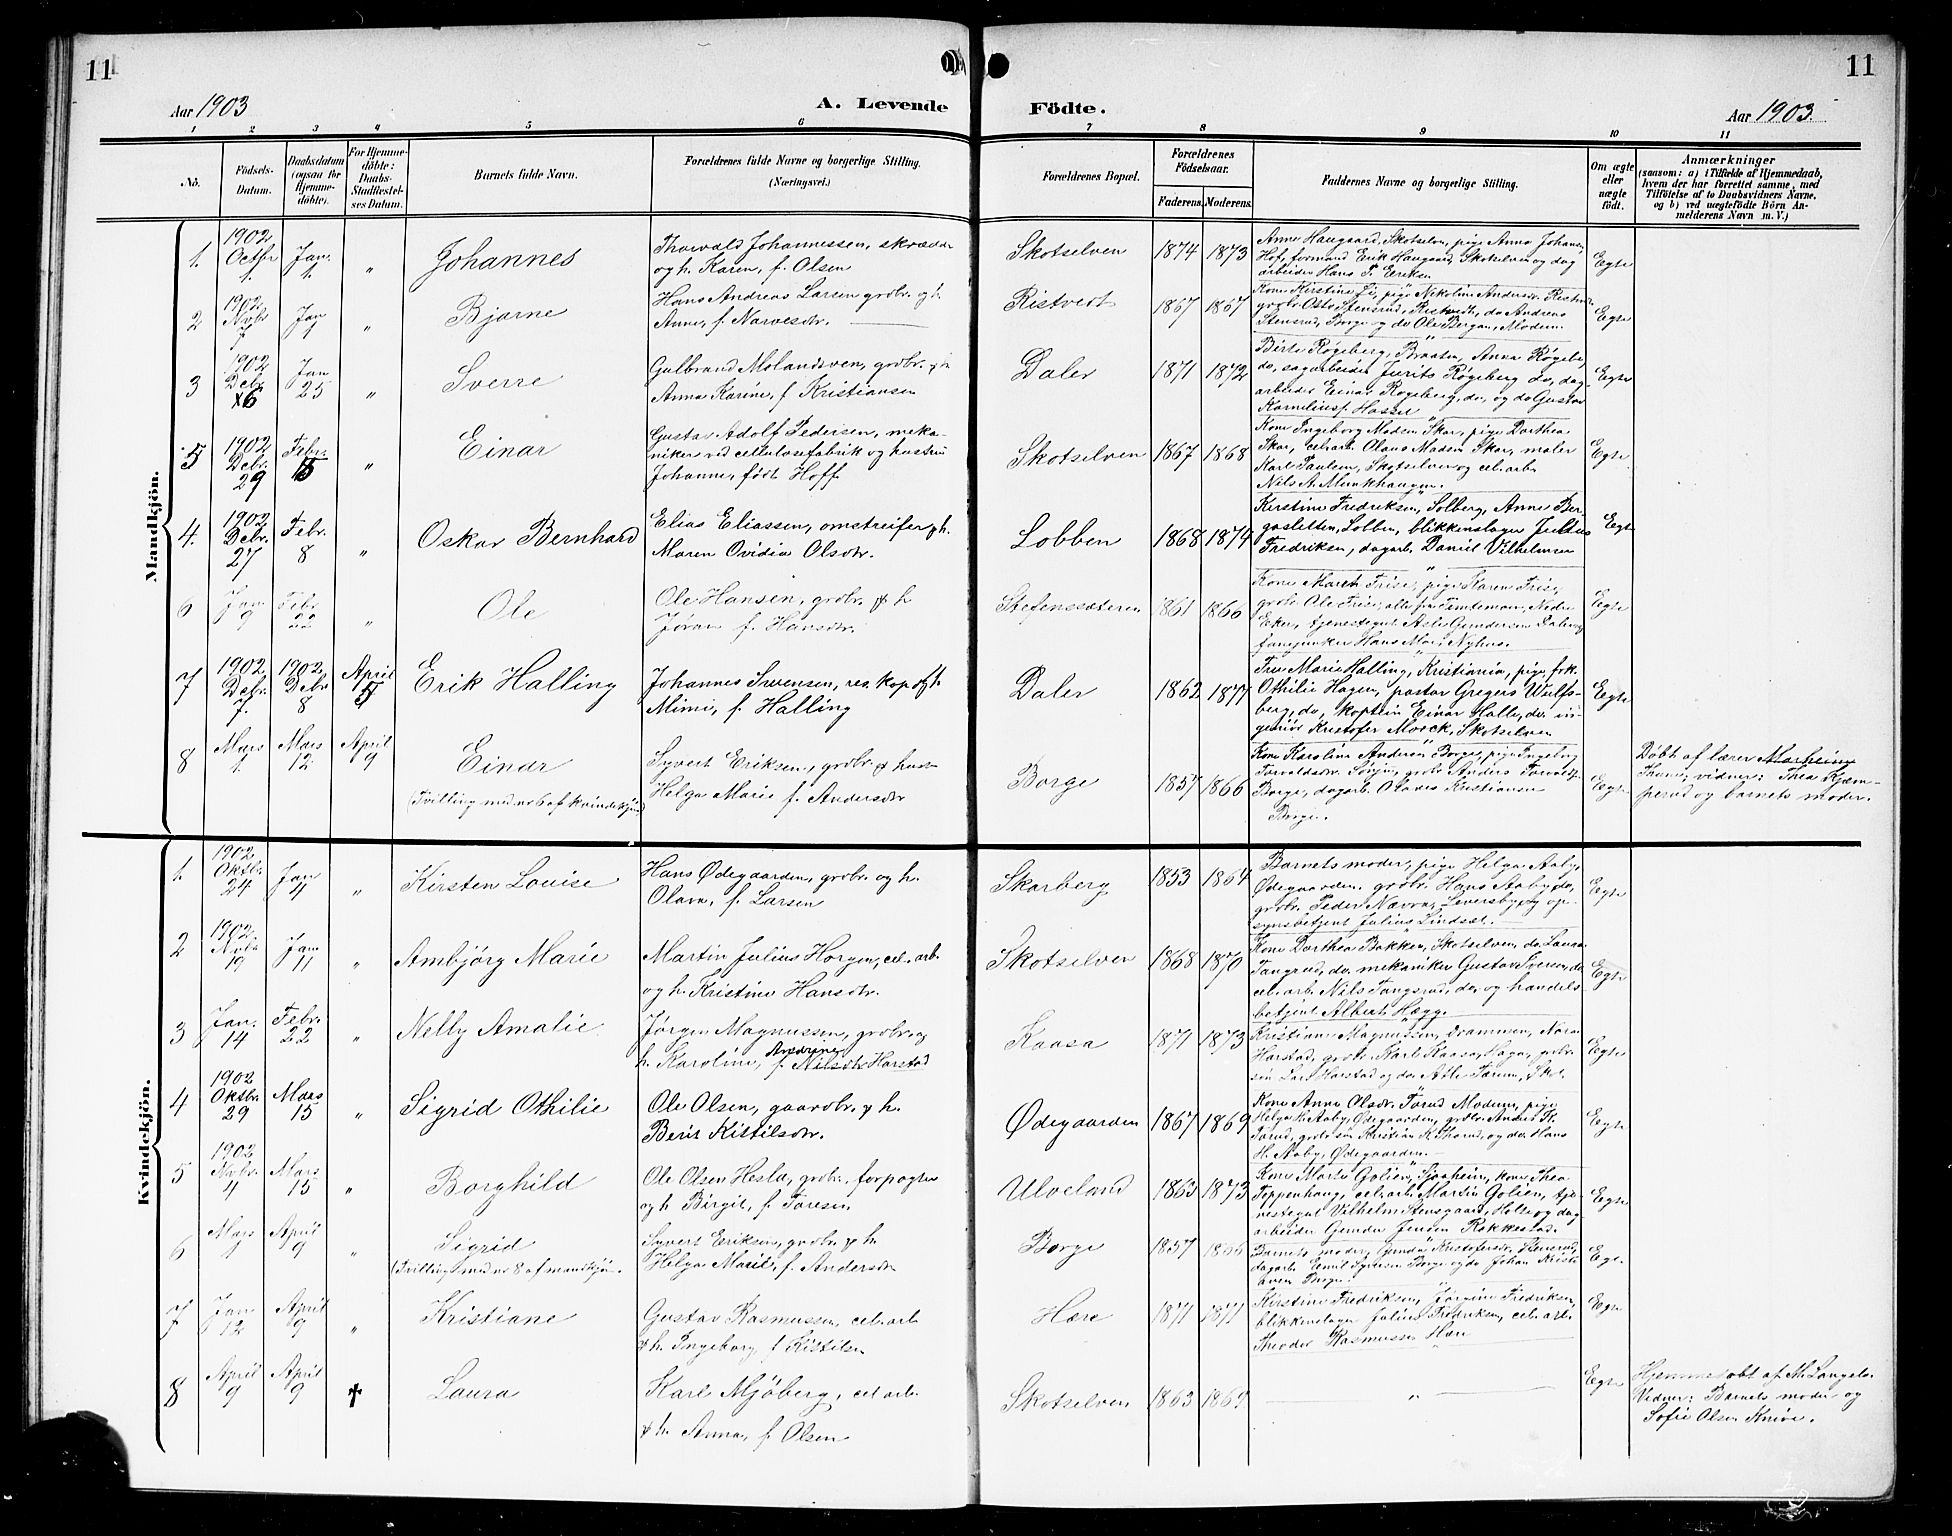 11
11
Aar 1903
A. Levende
Födte.
Aar 1903.
1 2 3 4 5 6 7 8 9 10 11
No.
Födsels-
Datum.
Daabsdatum
(ogsaa för
Hjemme-
döbte).
For Hjemme-
döbte:
Daabs-
Stadfæstel-
ses Datum.
Barnets fulde Navn.
Forældrenes fulde Navne og borgerlige Stilling.
(Næringsvei.)
Forældrenes Bopæl.
Forældrenes
Födselsaar.
Faderens. Moderens.
Faddernes Navne og borgerlige Stilling.
Om ægte
eller
uægte
födt.
Anmærkninger
(saasom: a) i Tilfælde af Hjemmedaab,
hvem der har forrettet samme, med
Tilföielse af to Daabsvidners Navne,
og b) ved uægtefödte Börn An-
melderens Navn m. V.)
Mandkjön.
1. 1902 Octbr 1. Jan. 1. „ Johannes
Thorvald Johannessen, skrædder
og h. Karen, f. Olsen
Skotselven 1874 1873
Anne Haugaard, Skotselv, pige Anna Johans,
Hof, formand Erik Haugaard, Skotselven og dag
arbeider Hans P. Eriksen
Egte
2 1902 Nvbr 7 Jan 1 „ Bjarne
Hans Andreas Larsen grdbr. og h
Anne, f. Narvesdtr.
Ristvedt 1867 1867
Stensrud, Borge og do Ole Bergan, Modum.
Egte
3 1902 Debr. 26 Jan 25 „ Sverre
Gulbrand Molandsveen, grdbr. & h
Anna Karine, f Kristiansen
Daler 1871 1872
Berte Røgeberg, Braaten, Anna Røgebe
do, sagarbeider Jurits Røgeberg do, dag-
arbeider Einar Røgeberg, do, og do Gustav
Kornelius f. Hassel
Egte
5 1902 Debr. 29 Febr. 15 „ Einar
Gustav Adolf Pedersen, meka-
niker ved cellulosefabrik og hustru
Johanne, født Hoff
Skotselven 1867 1868
Kone Ingeborg Madsen Skar, pige Dorthea
Skar, cel.arb. Olaus Madsen Skar, maler
Karl Paulsen, Skotselven og cel.arb.
Nils A. Munkhaugen.
Egte
4. 1902 Debr. 27 Febr. 8 „ Oskar Bernhard
Elias Eliassen, omstreifer & h.
Maren Ovidia Olsdtr.
Lobben 1868 1874
Kirstine Fredriksen, Solberg, Anne Ber-
gosletten, Lobben, blikkenslager Julius
Fredriksen, dagarb. Daniel Vilhelmsen
Egte
6 Jan. 9 Febr. 22 „ Ole
Ole Hansen, grdbr. & h
Jøran f. Hansdtr.
Stefenssæteren 1861 1866
Eker, tjenestegut Asle Gundersen Daler og
Egte
7 1902 Debr. 7. 1902 Debr 8 April 5 Erik Halling
Johannes Svensen, res. kap og h
Mimi, f. Halling
Daler 1862 1871
Fru Marie Halling, Kristiania, pige frk.
Othilie Hagen, pastor Gregers Wulfs-
berg, do, kaptein Einar Halle, do. in-
geniør Kristofer Morck, Skotselven
Egte
8 Mars 1. Mars 12. April 9 Einar
(Tvilling med no 6 af kvindekjøn)
Syvert Eriksen, grdbr. & hust
Helga Marie f. Andersdtr
Borge 1857 1866
Kone Karoline Andersen Borge, pige Ingeborg
Torvaldsdtr. Borge, grdbr Anders Torvalds.
Borge, dagarb. Olaves Kristiansen
Borge.
Egte
Døbt af lærer
Thon, vidner: Thea Kjem-
perud og barnets moder.
Kvindekjön.
1. 1902 Oktbr. 24 Jan 4 „ Kirsten Louise
Hans Ødegaarden, grdbr. og h.
Olava, f. Larsen
Skarberg 1853 1864
Barnets moder, pige Helga Aaby,
Ødegaarden. grdbr. Hans Aaby do,
grdbr. Peder Narvra, Leversby og op-
synsbetjent Julius Lindsæt.
Egte
2 1902. Nvbr 19 Jan 11 „ Ambjörg Marie
Martin Julius Horgen, cel.arb.
og h. Kristine Hansdtr.
Skotselven 1868 1870
Kone Dorthea Bakken, Skotselven, do Laura
Tangrud, do. mekaniker Gustav Iversen, do
cel.arb. Nils Tangsrud, do, og handels-
betjent Albert Hægg.
Egte
3 Jan. 14 Febr. 22 „ Nelly Amalie.
Jørgen Magnussen, grdbr. og
h. Karoline, Andrine f. Nilsdtr Harstad
Kaasa 1871 1873
Kristiane Magnussen, Drammen, Nora
Harstad, grdbr. Karl Kaasa, Haga, grdbr.
søn Lars Harstad og do. Atle Tærum, Skot.
Egte
4 1902 Oktbr. 29 Mars 15 „ Sigrid Othilie
Ole Olsen, gaardbr. & h.
Berit Kittilsdtr.
Ødegaarden 1867 1869
Kone Anna Olsdtr. Torud Modum, pige
Helga H. Aaby, Ødegaarden, grdbr. Anders K.
Torud, grdbrsøn Kristian K. Thorud, og do. Hans
H. Aaby, Ødegaarden.
Egte
5 1902 Nvbr. 4 Mars 15 „ Borghild
Ole Olsen Hesla, grdbr. forpagter
og h Birgit, f. Toresen
Ulveland 1863 1873
Kone Marte Golien, Sjøaheim, kone Thea
Toppenhaug, cel.arb. Martin Golien, tje-
nestegut Vilhelm Stensgaard, Holte og dag
arbeider Gunder Jensen Rokkestad.
Egte
6 Mars 1 April 9 „ Sigrid
(Tvilling med no 8 af mandkjøn.
Syvert Eriksen, grdbr. & h.
Helga Marie, f. Andersdtr
Borge 1857 1866
Barnets moder, Gunda Kristofersdtr. Stensrud,
dagarb. Emil Syversen Borge og do Johan Kristi
ansen Borge.
Egte
7 Jan 12 April 9 „ Kristiane
Gustav Rasmussen, cel.arb
& h. Ingeborg, f Kittilsen
Hære 1871 1871
Kirstine Fredriksen, Jørgine Fredriksen,
blikkenslager Julius Fredriksen, cel.arb.
Theodor Rasmussen Hære
Egte
8 April 9 April 9 † Laura
Karl Mjøberg, cel.arb.
& h. Anna, f. Olsen
Skotselven 1863 1869 „
Egte
Hjemmedøbt af M. Langelo.
Vidner: Barnets moder og
Sofie Olsen Knive.